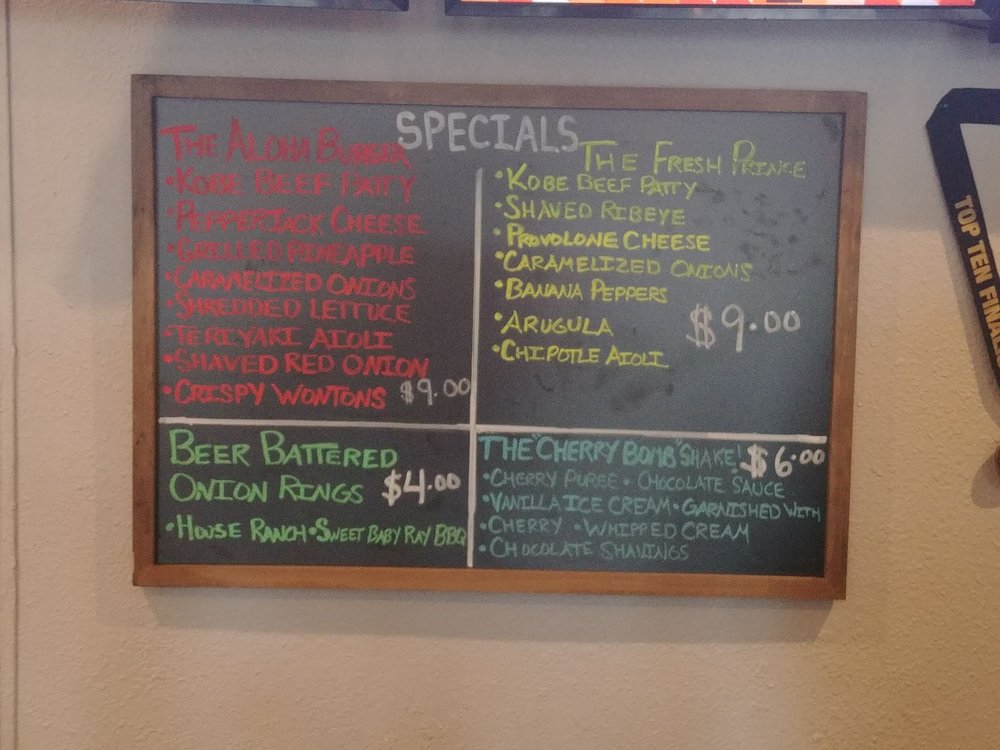 SPECIALS
THE ALOHA BURGER
•KOBE BEEF PATTY
•PEPPERJACK CHEESE
•GRILLED PINEAPPLE
•CARAMELIZED ONIONS
•SHREDDED LETTUCE
•TERIYAKI AIOLI
•SHAVED RED ONION
•CRISPY WONTONS $9.00
THE FRESH PRINCE
•KOBE BEEF PATTY
•SHAVED RIBEYE
•PROVOLONE CHEESE
•CARAMELIZED ONIONS
•BANANA PEPPERS
•ARUGULA
$9.00
•CHIPOTLE AIOLI
BEER BATTERED
ONION RINGS $4.00
•HOUSE RANCH •SWEET BABY RAY BBQ
THE "CHERRY BOMB" SHAKE! $6.00
•CHERRY PUREE •CHOCOLATE SAUCE
•VANILLA ICE CREAM •GARNISHED WITH
•CHERRY •WHIPPED CREAM
•CHOCOLATE SHAVINGS
TOP TEN